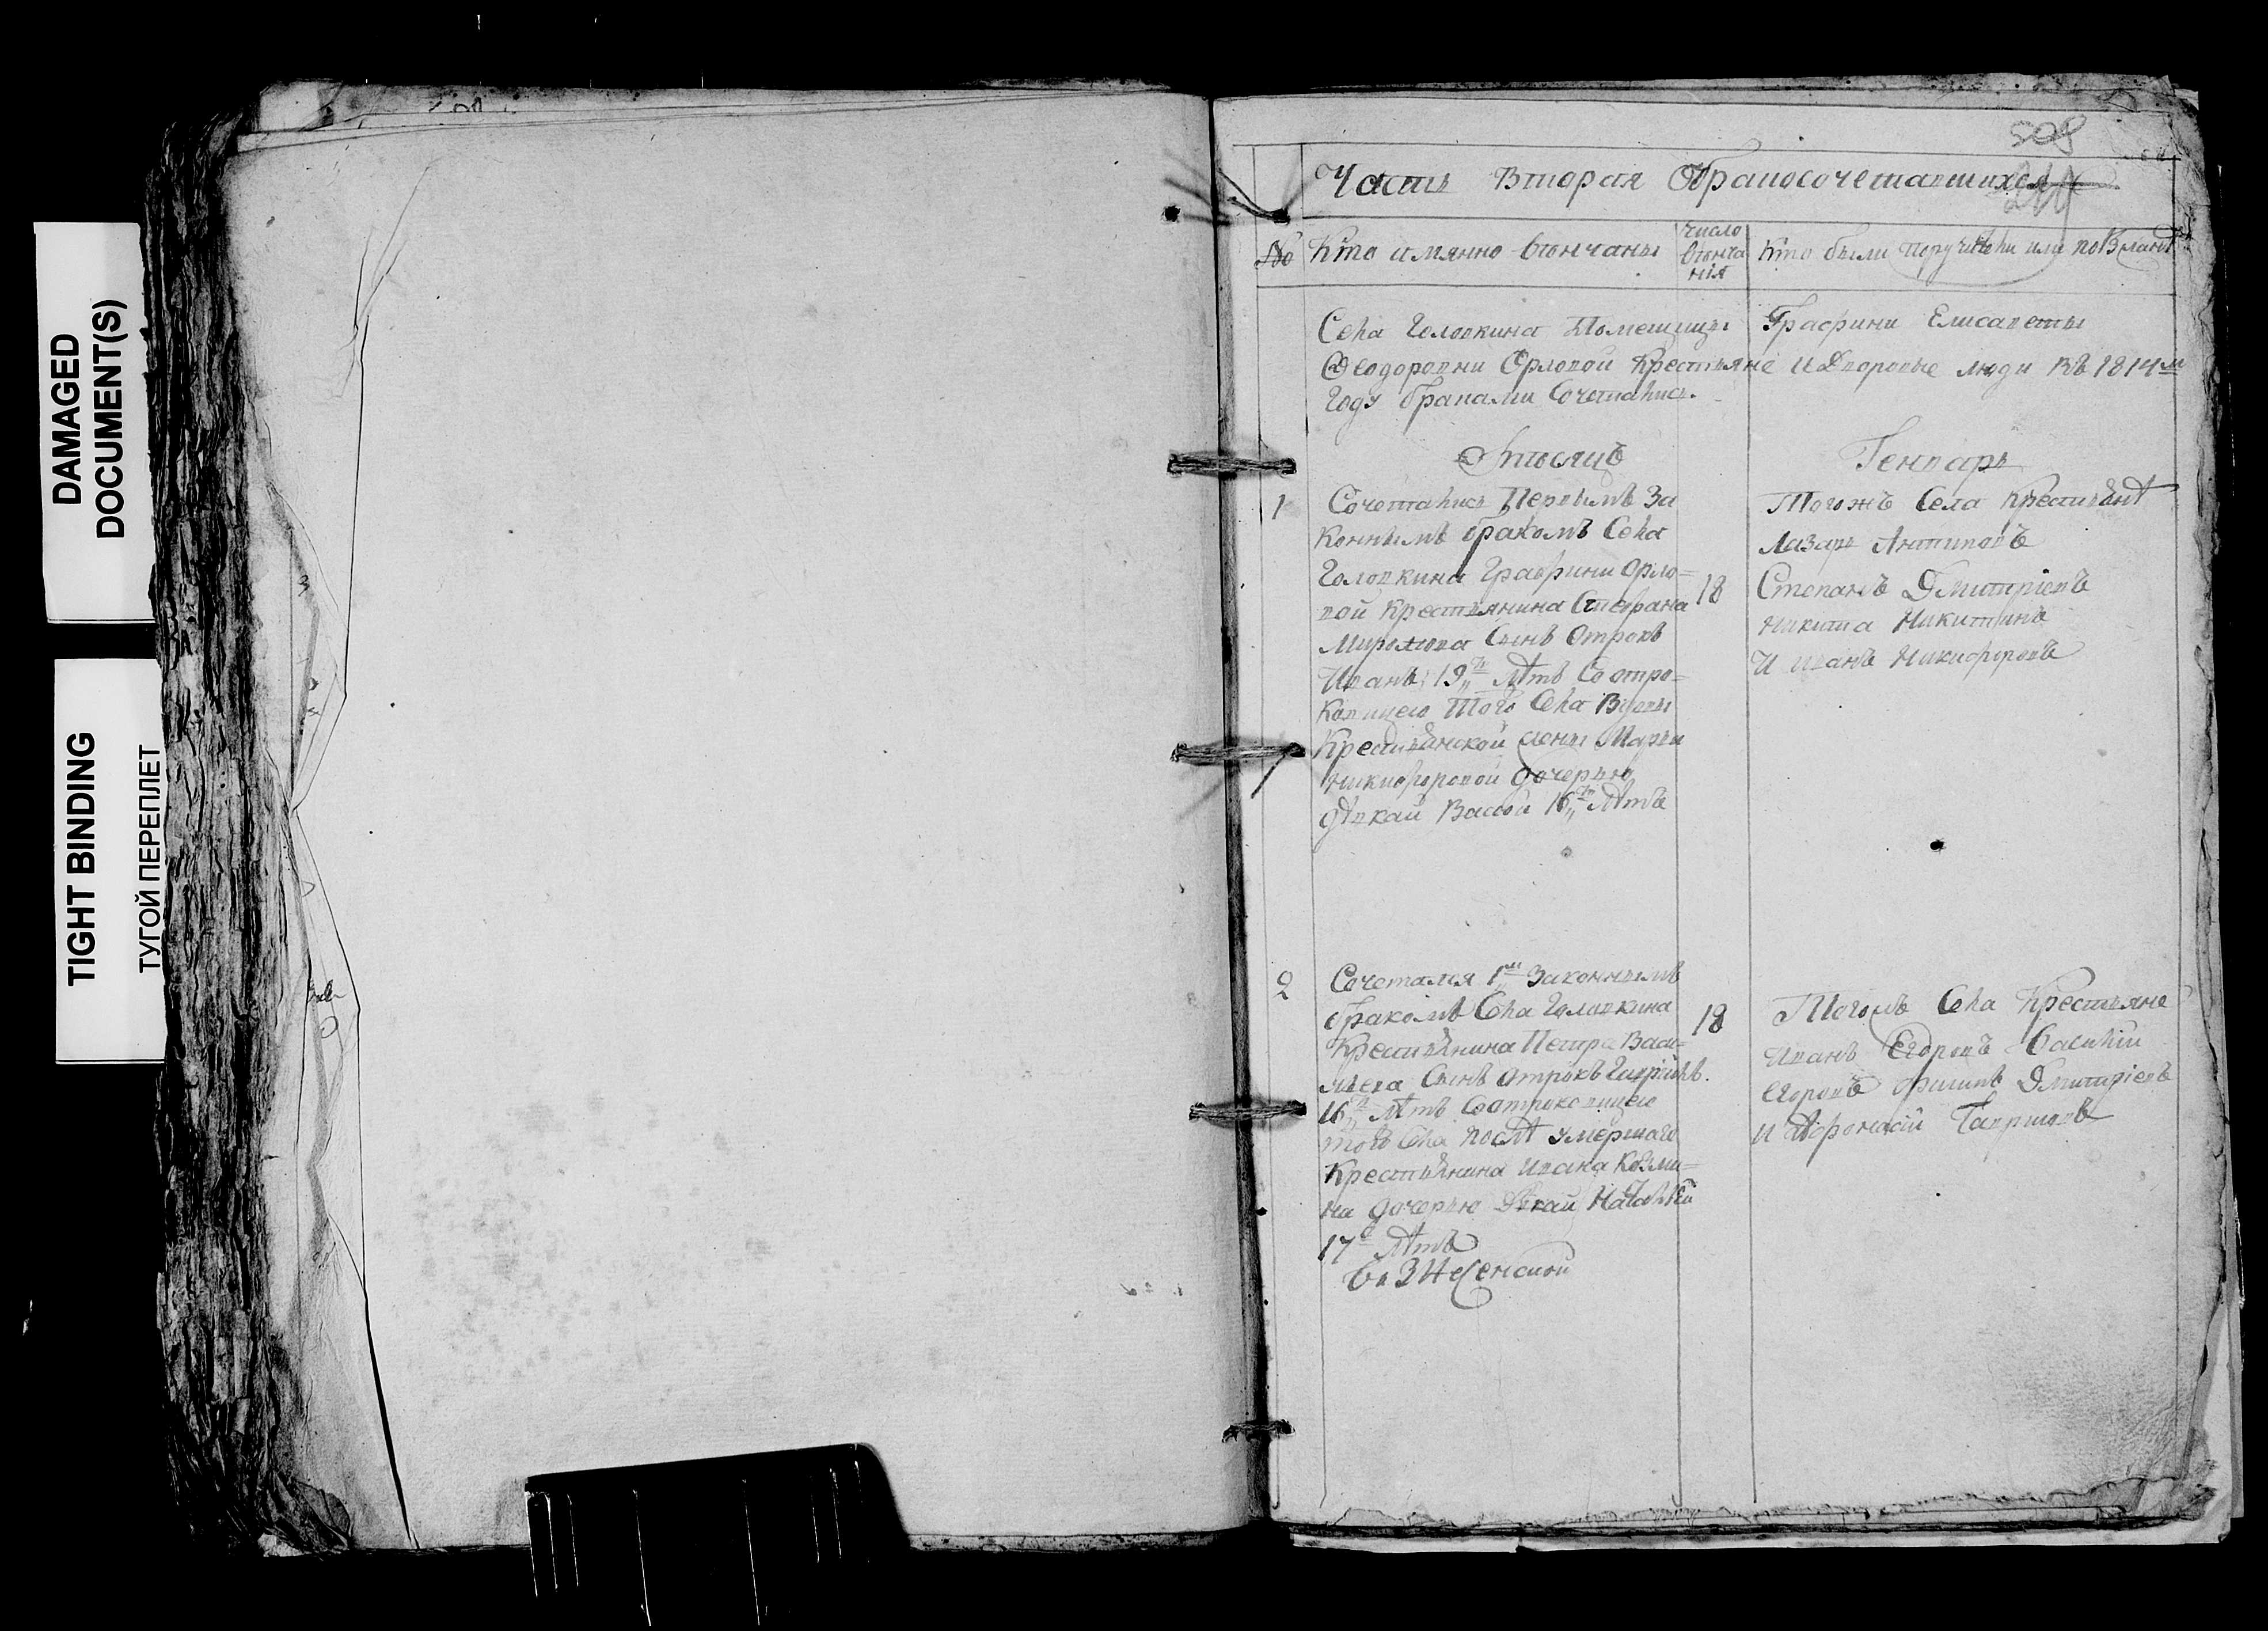 DAMAGED
DOCUMENT(S)
TIGHT BINDING
ТУГОЙ ПЕРЕПЛЕТ
508
Часть Вторая Обракосочетавшихся
№ Кто имянно венчаны
число
венча
нія
Кто были поручики или по
Села Головкина Помещицы Графини Елисаветы
Ѳеодоровни Орловой Крестьяне и Дворовые люди Въ 1814м
Году браками Сочетались.
Мѣсяцъ Генварь
1 Сочетались Первымъ За
коннымъ бракомъ Села
Головкина Графини Орло=
вой Крестьянина Стефана
Миронова Сынъ Отрокъ
Иванъ 19ти лѣтъ Со отро=
ковицею Того Села Вдовы
Крестьянской жены Марьи
Никифоровой дочерью
дѣвкай Васой 16ти лѣтъ
18
Тогожъ Села Крестьянѣ
Лазарь Антиповъ
Степанъ Дмитріевъ
Никита Никитинъ
И иванъ Никифоровъ
2 Сочетался 1м Законнымъ
бракомъ Села Головкина
Крестьянина Петра Васи=
льева Сынъ отрокъ
16ти лѣтъ Соотроковицею
того Села послѣ умершаго
Крестьянина ивана Козми=
на дочерью Дѣвкай Натальей
17 лѣтъ
18
Тогожъ Села Крестьяне
иванъ Егоровъ Василій
Егоровъ Филипъ Дмитріевъ
и Афонасій Гавриловъ
Вознесенской